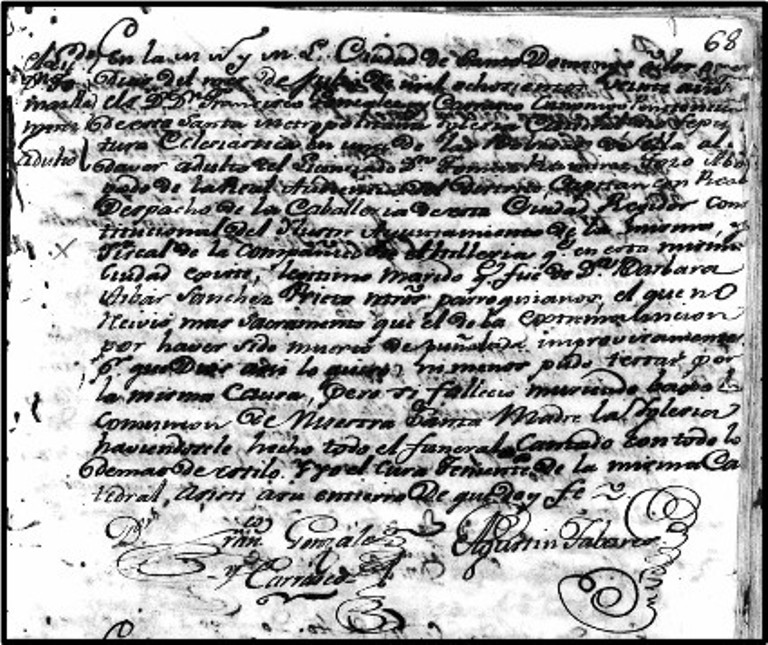 68
En la m. N. y m. L. Ciudad de Santo Domingo a los
dias del mes de Julio de mil ochocientos veinte
el S. D. Dn. Francisco Gonzalez y Carrasco Canonigo
de esta Santa Metropolitana Iglesia Catedral sepul
tura Eclesiastica en una de las de ella al
adulto
daver adulto del Licenciado Dn. Abo
gado de la Real Audiencia del distrito, Capitan con Real
Despacho de la Caballeria de esta Ciudad, Regidor Cons
titucional del Ilustre Ayuntamiento de la misma, y
Fiscal de la Compañia de Artilleria q. en esta misma
Ciudad existe, legitimo marido q. fue de Da. Barbara
Aibar Sanchez Prieto ntros parroquianos, el que no
recivio mas Sacramento que el de la Extremauncion
por haver sido muerto de puñalada improvisamente
q. que Dios asi lo quiso, ni menos pudo testar por
la misma Causa, pero si fallecio muriendo bajo la
comunion de Nuestra Santa Madre la Iglesia
haviendosele hecho todo el funeral Cantado con todo lo
demas de estilo. Y yo el Cura Teniente de la misma Ca
tedral, asisti a su entierro de que doy fe
Dr. Fran.co Gonzalez Agustin Tabares
y Carrasco